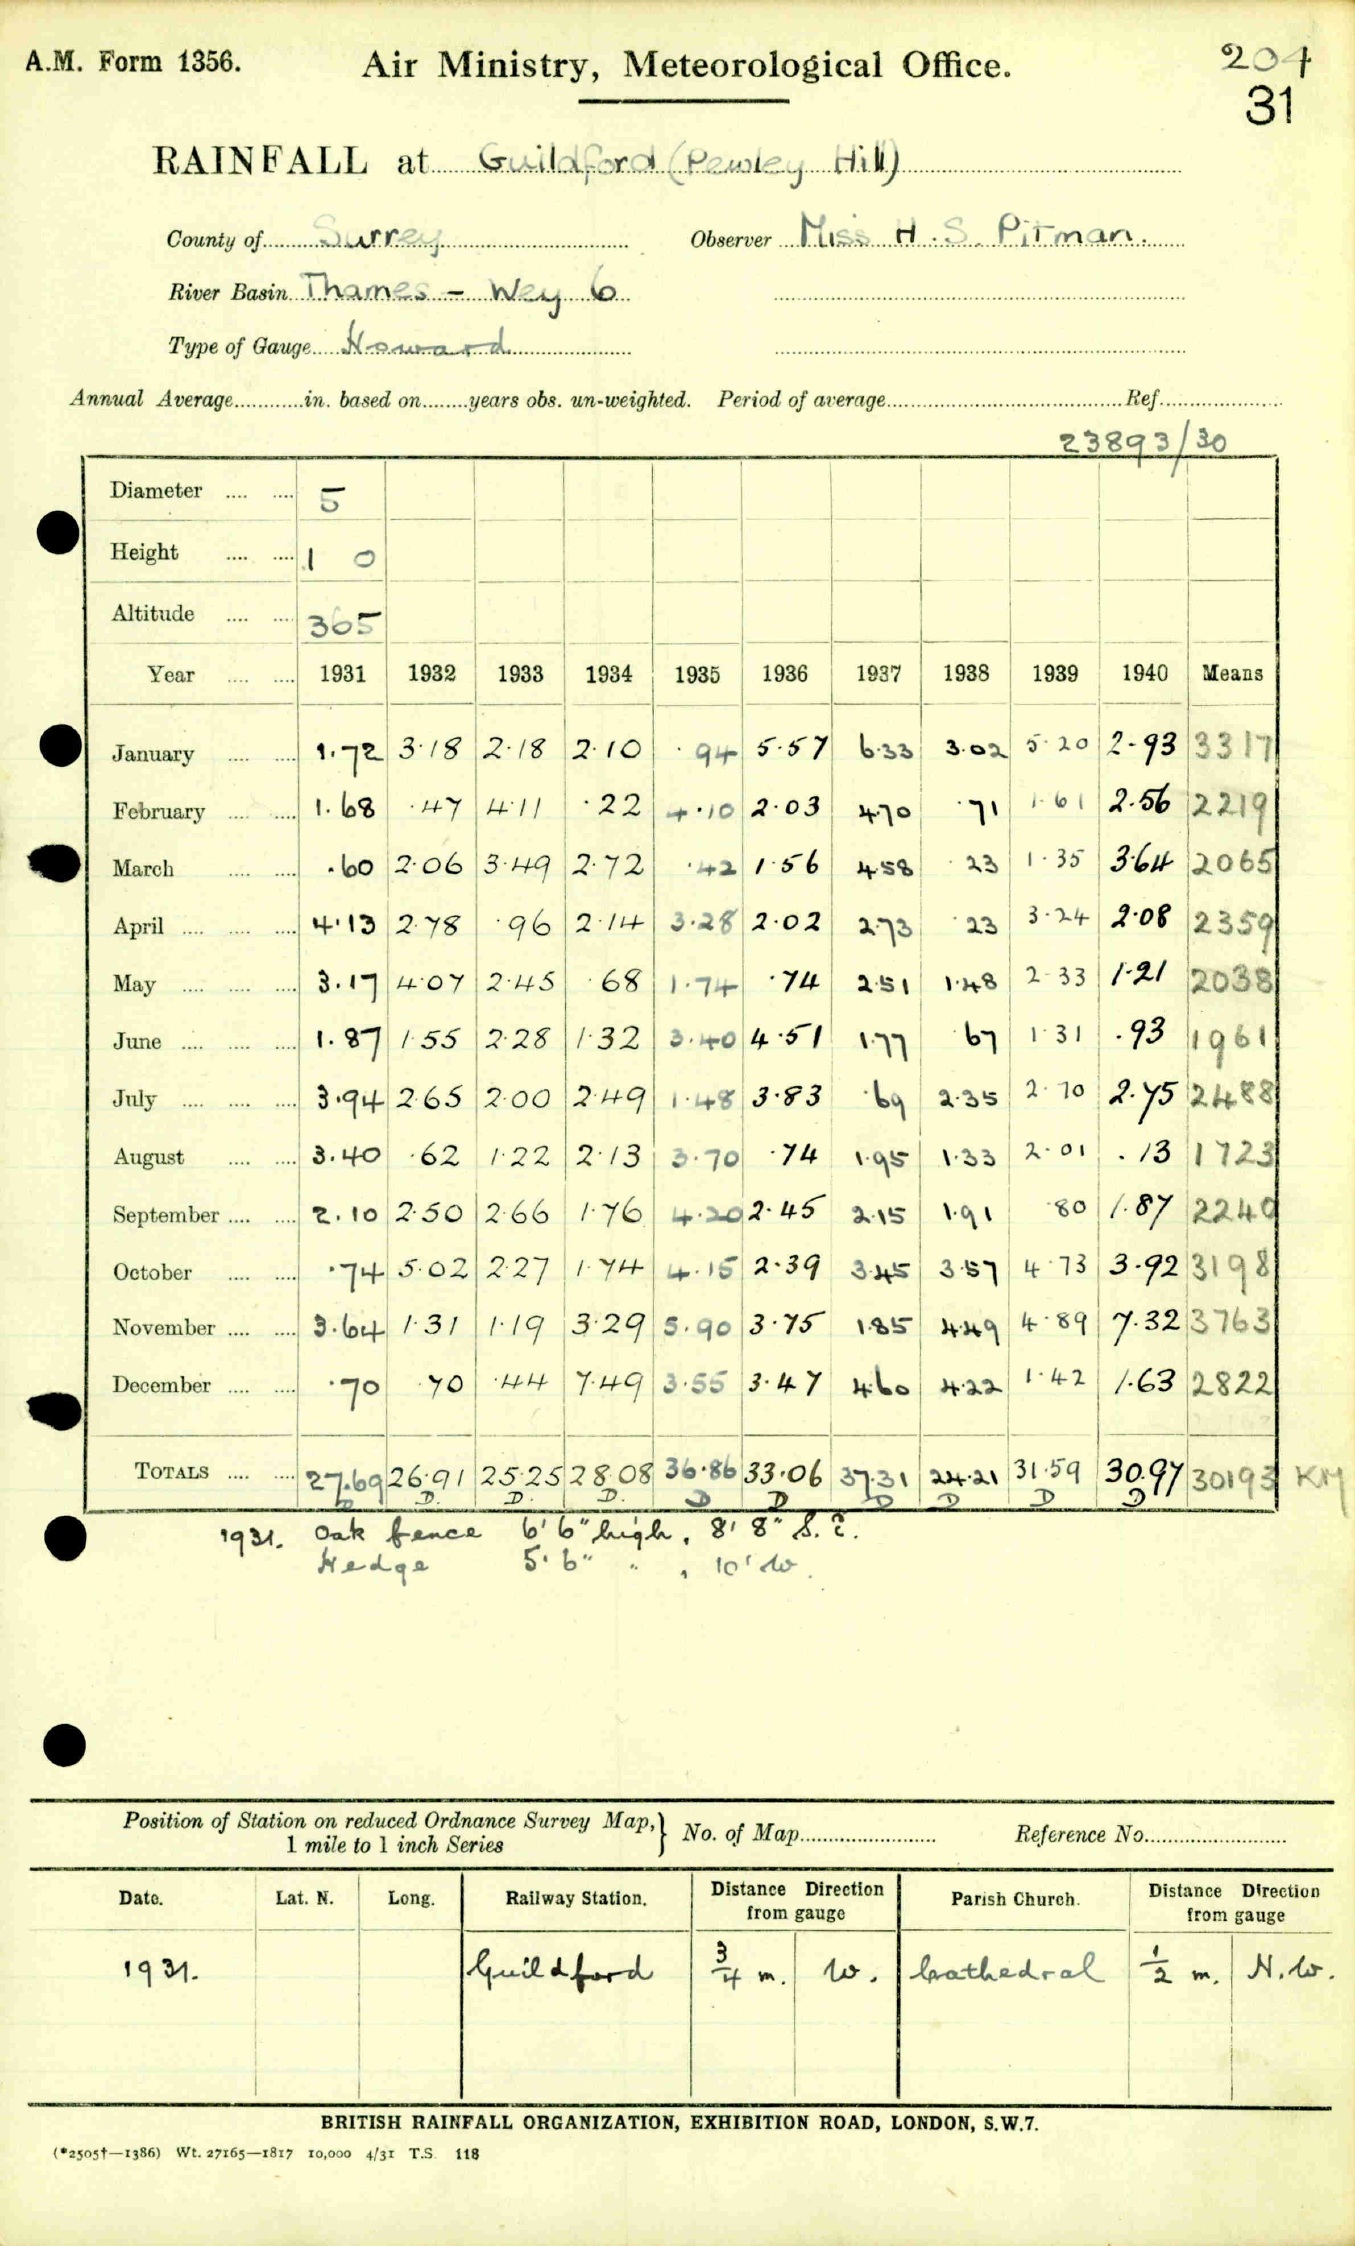 A.M. Form 1356.
Air Ministry, Meteorological Office.
204
31
RAINFALL at Guildford (Pewley Hill)
County of Surrey Observer Miss H. S. Pitman.
River Basin Thames – Wey 6
Type of Gauge Howard
Annual Average............in. based on........years obs. un-weighted. Period of average........................Ref....................
23893/30
Diameter .... .... 5
Height .... .... 1 0
Altitude .... .... 365
Year .... .... 1931 1932 1933 1934 1935 1936 1937 1938 1939 1940 Means
January .... .... 1.72 3.18 2.18 2.10 .94 5.57 6.33 3.02 5.20 2.93 3317
February .... .... 1.68 .47 4.11 .22 4.10 2.03 4.70 .71 1.61 2.56 2219
March .... .... .60 2.06 3.49 2.72 .42 1.56 4.58 .23 1.35 3.64 2065
April .... .... .... 4.13 2.78 .96 2.14 3.28 2.02 2.73 .23 3.24 2.08 2359
May .... .... .... 3.17 4.07 2.45 .68 1.74 .74 2.51 1.48 2.33 1.21 2038
June .... .... .... 1.87 1.55 2.28 1.32 3.40 4.51 1.77 .67 1.31 .93 1961
July .... .... .... 3.94 2.65 2.00 2.49 1.48 3.83 .69 2.35 2.70 2.75 2488
August .... .... 3.40 .62 1.22 2.13 3.70 .74 1.95 1.33 2.01 .13 1723
September .... .... 2.10 2.50 2.66 1.76 4.20 2.45 2.15 1.91 .80 1.87 2240
October .... .... .74 5.02 2.27 1.74 4.15 2.39 3.45 3.57 4.73 3.92 3198
November .... .... 3.64 1.31 1.19 3.29 5.90 3.75 1.85 4.49 4.89 7.32 3763
December .... .... .70 .70 .44 7.49 3.55 3.47 4.60 4.22 1.42 1.63 2822
TOTALS .... .... 27.69 26.91 25.25 28.08 36.86 33.06 37.31 24.21 31.59 30.97 30193 KM
D D. D. D. D D D D D D
1931. Oak fence 6' 6" high, 8' 8" S.E.
Hedge 5' 6" " , 10' W.
Position of Station on reduced Ordnance Survey Map,} No. of Map........................ Reference No.........................
1 mile to 1 inch Series
Date. Lat. N. Long. Railway Station. Distance Direction from gauge Parish Church. Distance Direction from gauge
1931. Guildford 3/4 m. W. Cathedral 1/2 m. N.W.
BRITISH RAINFALL ORGANIZATION, EXHIBITION ROAD, LONDON, S.W.7.
(*2505†—1386) Wt. 27165—1817 10,000 4/31 T.S. 118